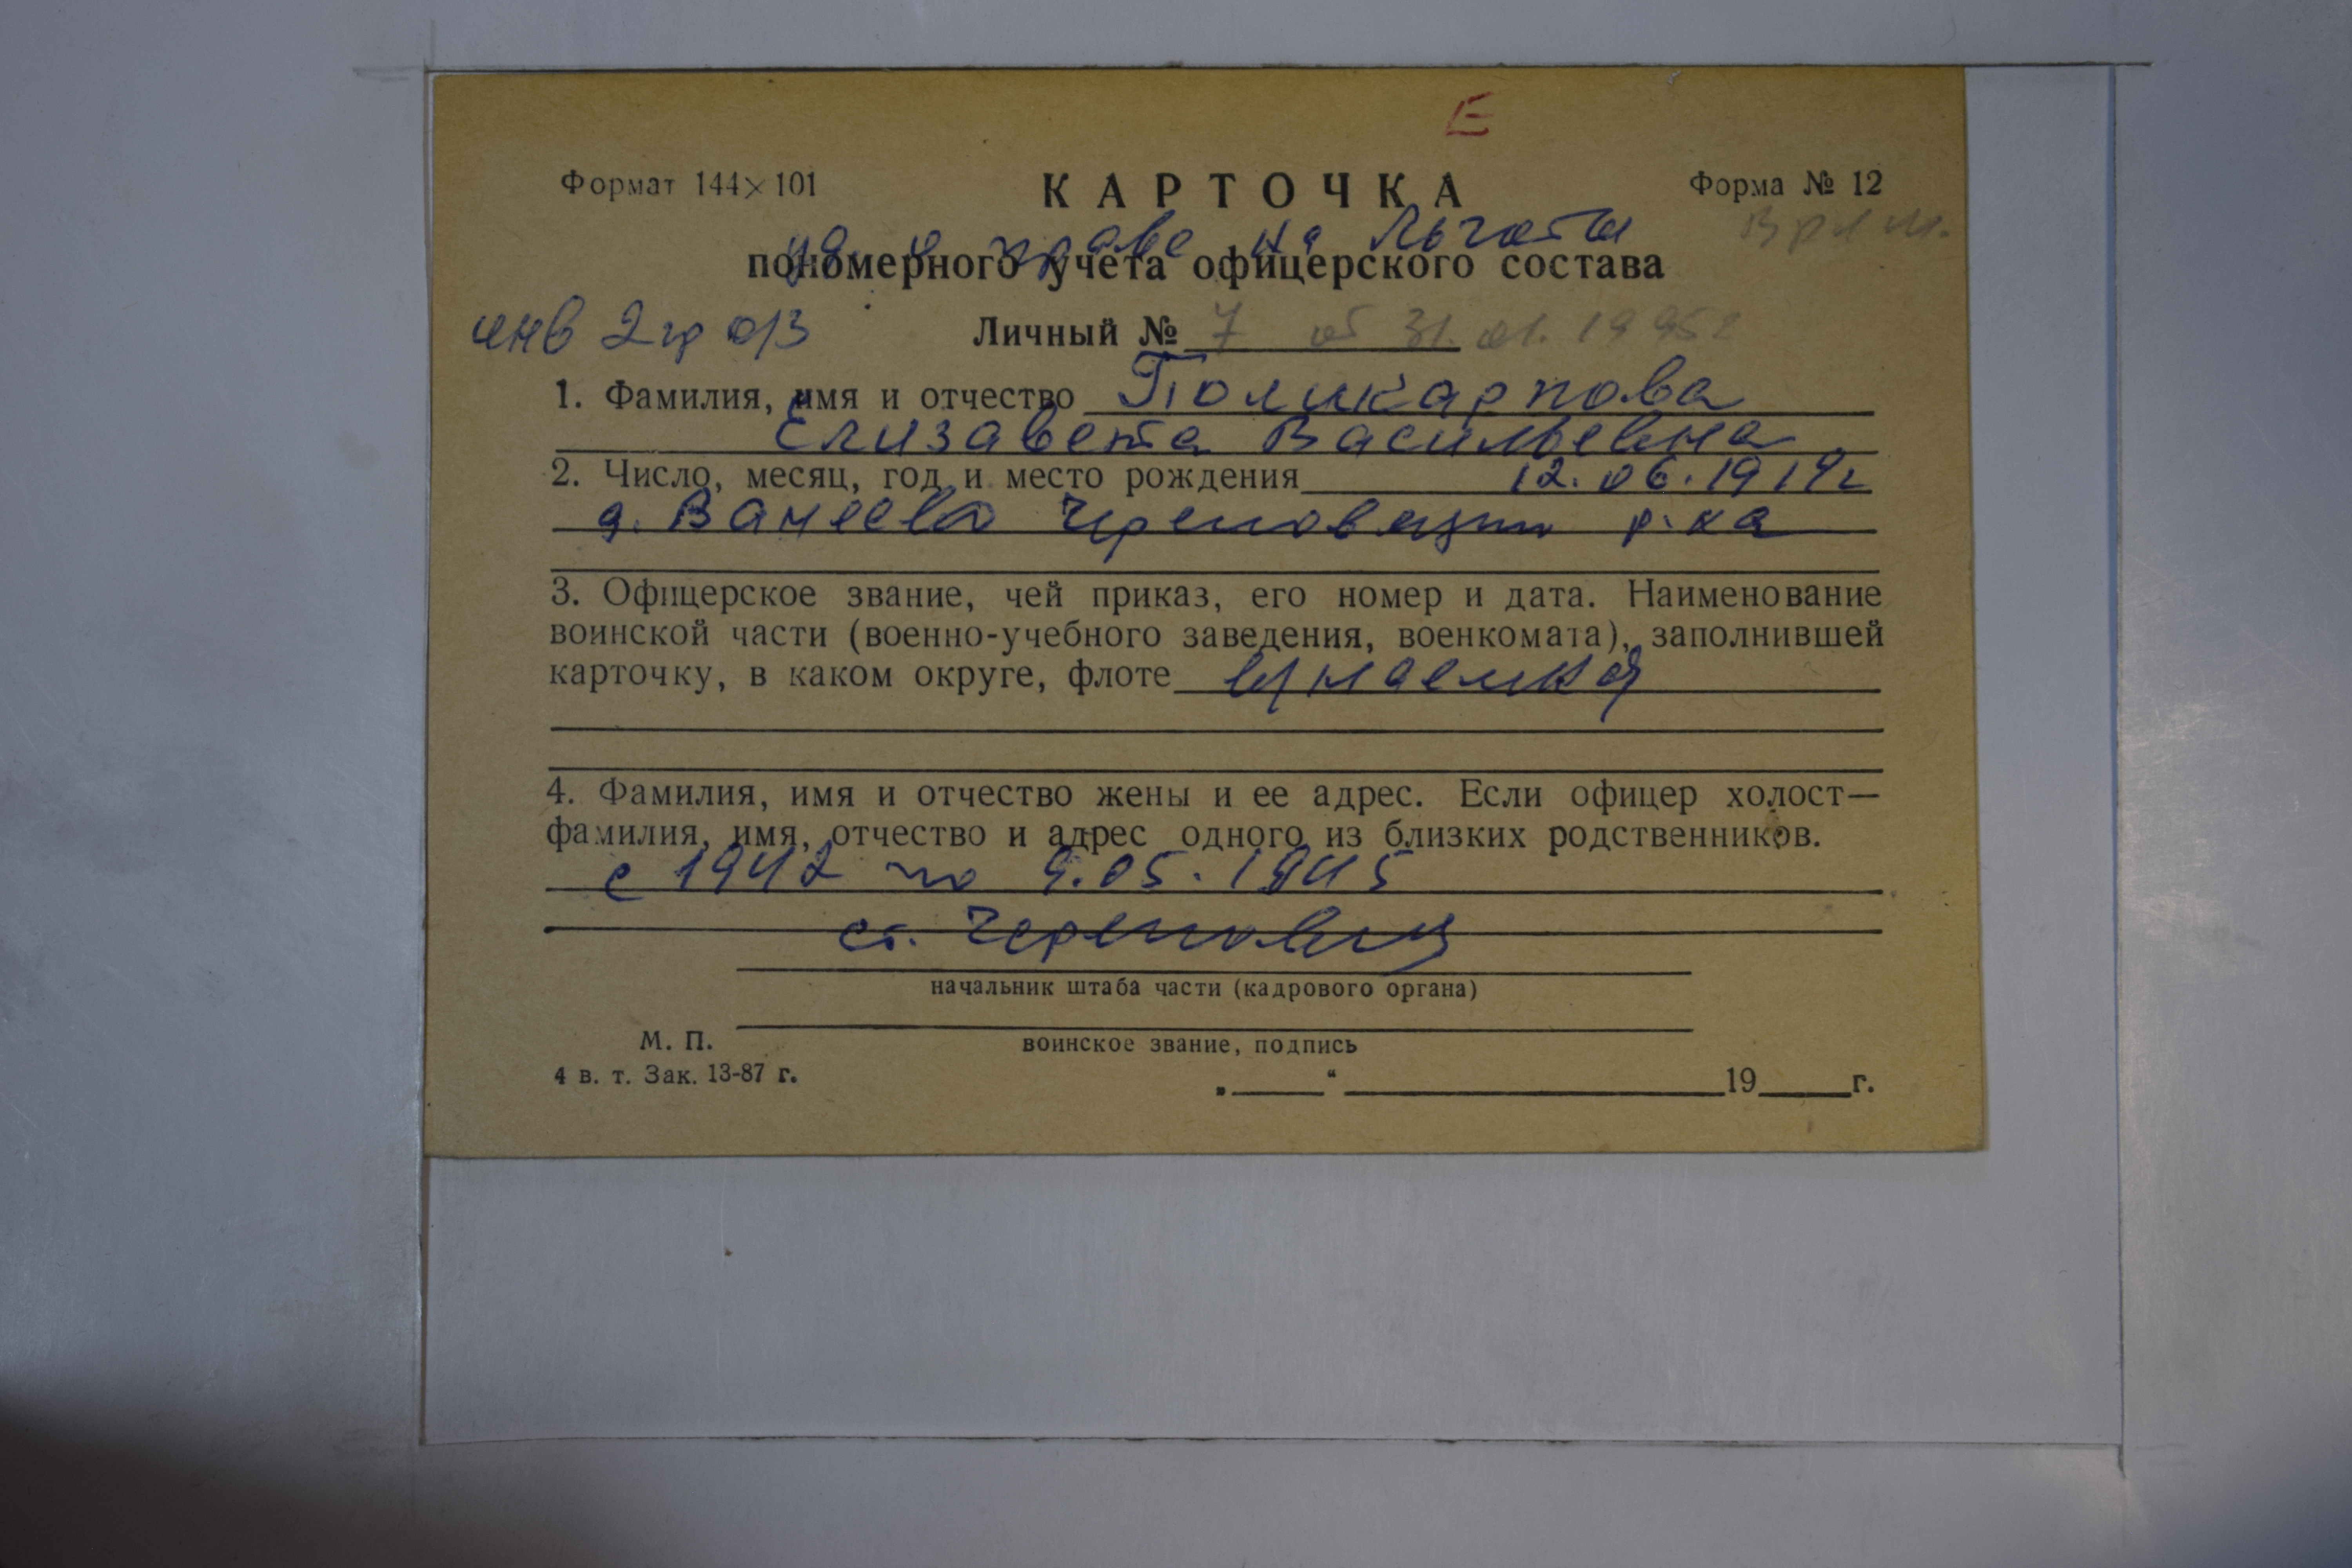 Е
Формат 144×101 КАРТОЧКА Форма № 12
уд. о праве на льготы
пономерного учета офицерского состава
инв 2 гр о/з Личный № 7 от 31.01.1995г
1. Фамилия, имя и отчество Поликарпова
Елизавета Васильевна
2. Число, месяц, год и место рождения 12.06.1919г
д. Ванеево Череповецк р-на
3. Офицерское звание, чей приказ, его номер и дата. Наименование
воинской части (военно-учебного заведения, военкомата), заполнившей
карточку, в каком округе, флоте
4. Фамилия, имя и отчество жены и ее адрес. Если офицер холост—
фамилия, имя, отчество и адрес одного из близких родственников.
с 1942 по 9.05.1945
ст. Череповец
начальник штаба части (кадрового органа)
М. П.
воинское звание, подпись
4 в. т. Зак. 13-87 г.
„____“ ____________19____г.